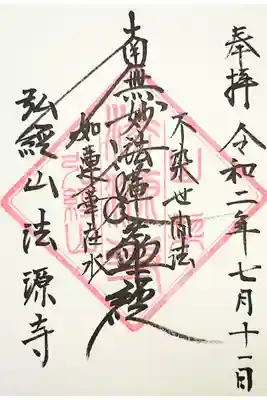 奉拝 令和二年七月十一日
不染世間法
南無妙法蓮華経
如蓮華在水
弘経山法源寺